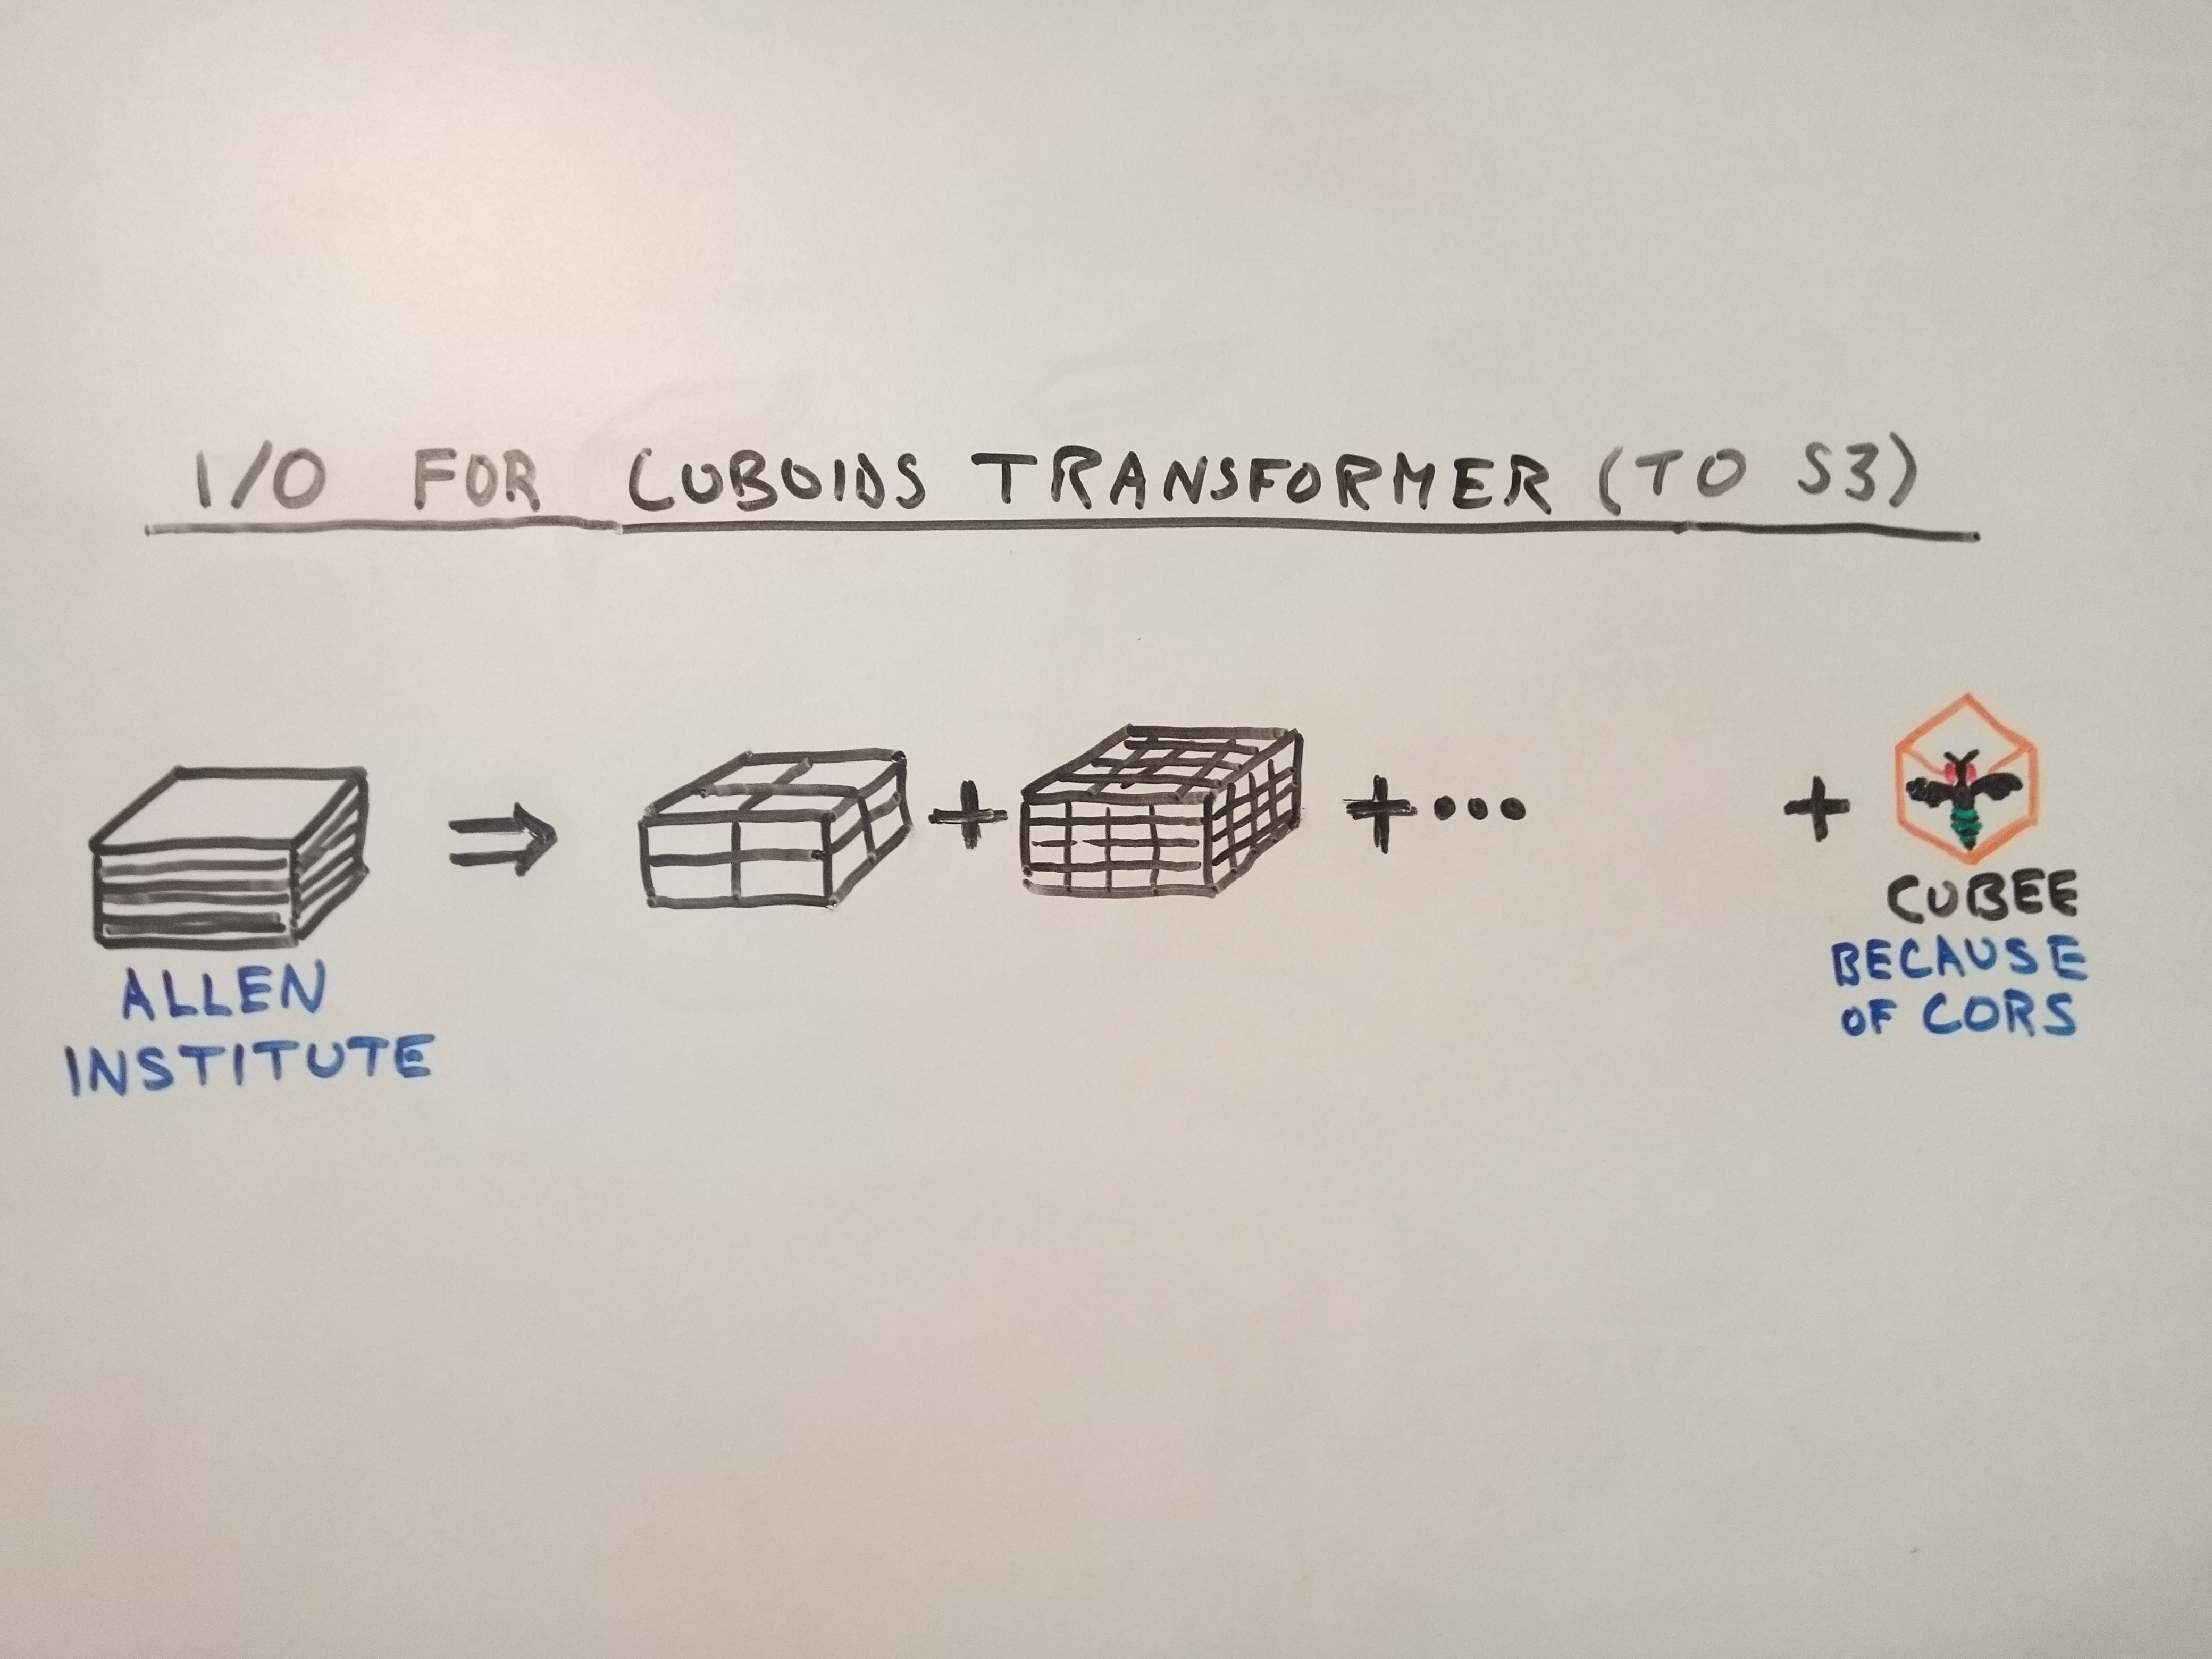 I/O FOR CUBOIDS TRANSFORMER (TO S3)
⇒ + + ••• +
ALLEN
INSTITUTE
CUBEE
BECAUSE
OF CORS